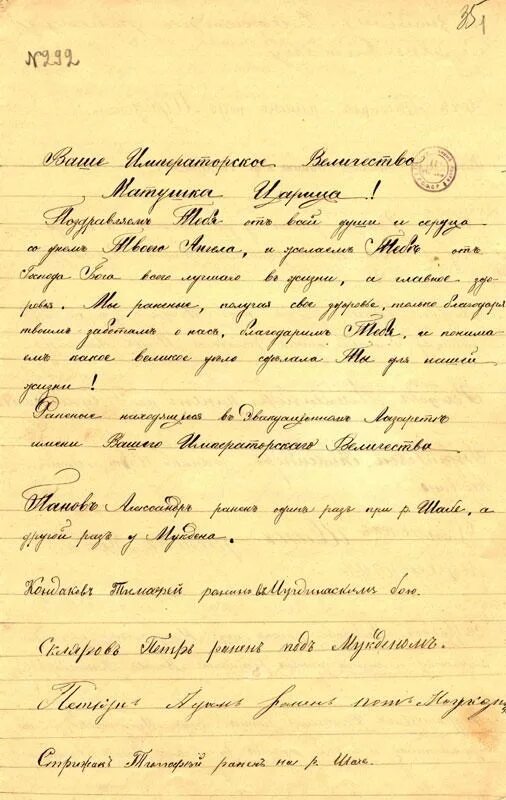 351
№292
Ваше Императорское Величество
Матушка Царица!
Поздравляемъ Тебя отъ всей души и сердца
со днемъ Твоего Ангела, и желаемъ Тебѣ отъ
Господа Бога всего лучшаго въ жизни, а главное здо-
ровья. Мы раненые, получая свое здоровье, только благодаря
твоимъ заботамъ о насъ, благодаримъ Тебя, и понима-
емъ какое великое дѣло сдѣлала Ты для нашей
жизни!
Раненые находящіеся въ Эвакуаціонномъ Лазаретѣ
имени Вашего Императорскаго Величества
Пановъ Александръ раненъ одинъ разъ при р. Шахе, а
другой разъ у Мукдена.
Кондаковъ Тимофей раненъ въ бою.
Скляровъ Петръ раненъ подъ Мукденомъ.
Адамъ ранен
Стрижакъ Тимофей раненъ на р. Шахе.